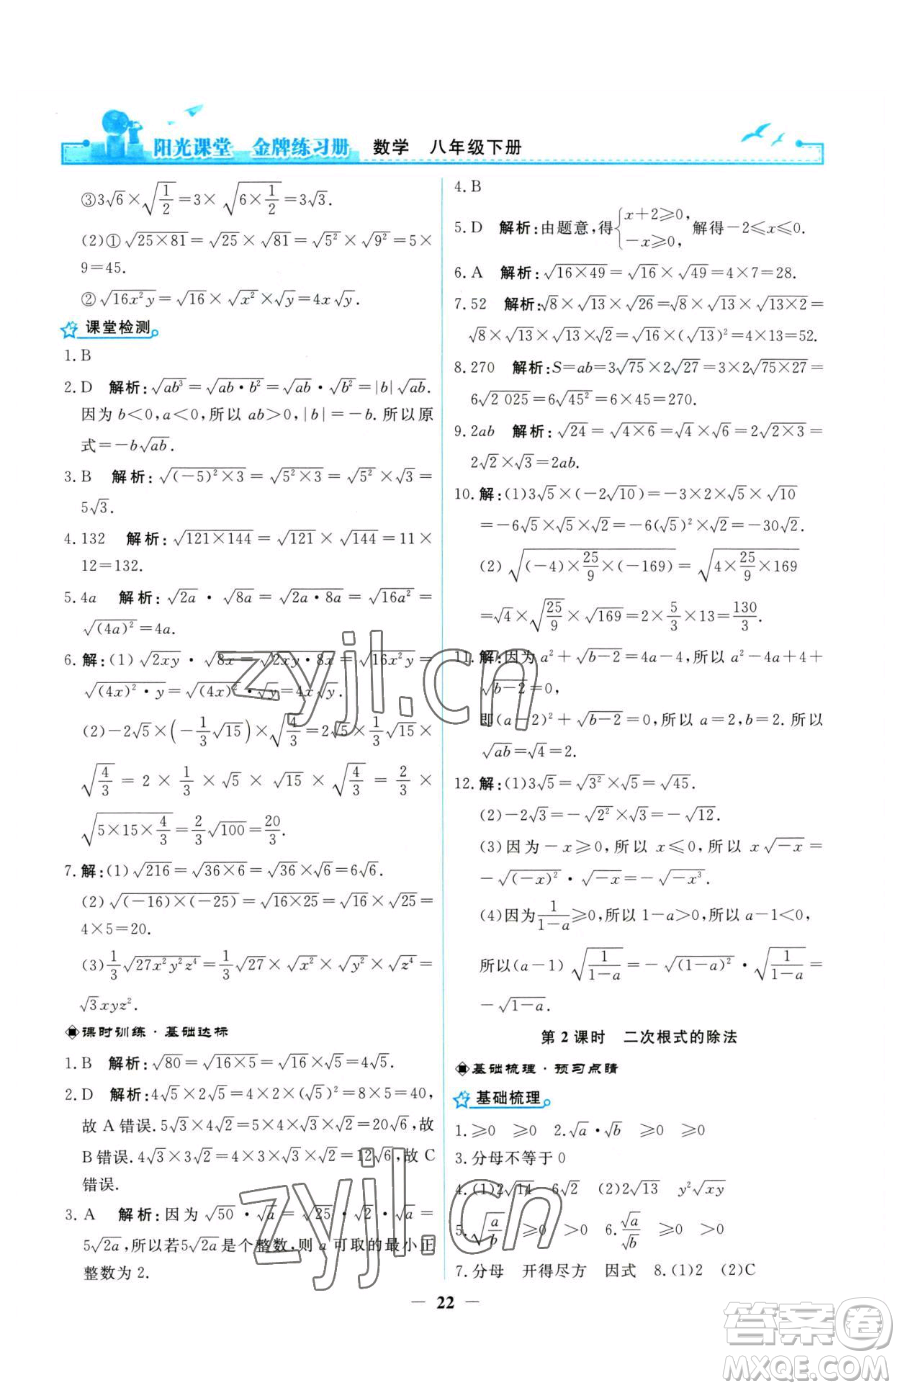 阳光课堂 金牌练习册 数学 八年级下册
③3√6×√(1/2)=3×√(6×1/2)=3√3.
(2)①√(25×81)=√25×√81=√(5²)×√(9²)=5×
9=45.
②√(16x²y)=√16×√(x²)×√y=4x√y.
课堂检测
1. B
2. D 解析:√(ab³)=√(ab·b²)=√(ab)·√(b²)=|b|√(ab).
因为b<0,a<0,所以ab>0,|b|=-b.所以原
式=-b√(ab).
3. B 解析:√((-5)²×3)=√(5²×3)=√(5²)×√3=
5√3.
4. 132 解析:√(121×144)=√121×√144=11×
12=132.
5. 4a 解析:√(2a)·√(8a)=√(2a·8a)=√(16a²)=
√((4a)²)=4a.
6. 解:(1)√(2xy)·√(8x)=√(2xy·8x)=√(16x²y)=
√((4x)²·y)=√((4x)²)·√y=4x√y.
(2)-2√5×(-1/3√15)×√(4/3)=2√5×1/3√15×
√(4/3)=2×1/3×√5×√15×√(4/3)=2/3×
√(5×15×4/3)=2/3√100=20/3.
7. 解:(1)√216=√(36×6)=√36×√6=6√6.
(2)√((-16)×(-25))=√(16×25)=√16×√25=
4×5=20.
(3)1/3√(27x²y²z⁴)=1/3√27×√(x²)×√(y²)×√(z⁴)=
√3xyz².
课时训练·基础达标
1. B 解析:√80=√(16×5)=√16×√5=4√5.
2. D 解析:4√5×2√5=4×2×√5×√5=8×5=40,
故A错误.5√3×4√2=5×4×√3×√2=20√6,故
B错误.4√3×3√2=4×3×√3×√2=12√6,故C
错误.
3. A 解析:因为√50·√a=√25·√2·√a=
5√(2a),所以若5√(2a)是个整数,则a可取的最小正
整数为2.
4. B
5. D 解析:由题意,得{x+2≥0, -x≥0, 解得-2≤x≤0.
6. A 解析:√(16×49)=√16×√49=4×7=28.
7. 52 解析:√8×√13×√26=√8×√13×√(13×2)=
√8×√13×√13×√2=√16×(√13)²=4×13=52.
8. 270 解析:S=ab=3√75×2√27=3×2√(75×27)=
6√2 025=6√(45²)=6×45=270.
9. 2ab 解析:√24=√(4×6)=√4×√6=2√2×√3=
2√2×√3=2ab.
10. 解:(1)3√5×(-2√10)=3×(-2)×√5×√10
=-6√5×√5×√2=-6(√5)²×√2=-30√2.
(2)√((-4)×25/9×(-169))=√(4×25/9×169)
=√4×√(25/9)×√169=2×5/3×13=130/3.
11. 解:因为a²+√(b-2)=4a-4,所以a²-4a+4+
√(b-2)=0,
即(a-2)²+√(b-2)=0,所以a=2,b=2,所以
√(ab)=√4=2.
12. 解:(1)3√5=√(3²)×√5=√45.
(2)-2√3=-√(2²)×√3=-√12.
(3)因为-x≥0,所以x≤0,所以x√(-x)=
-√((-x)²)·√(-x)=-√(-x³).
(4)因为1/(1-a)≥0,所以1-a>0,所以a-1<0,
所以(a-1)√(1/(1-a))=-√((1-a)²)·√(1/(1-a))=
-√(1-a).
第2课时 二次根式的除法
基础梳理·预习点睛
基础梳理
1. ≥0 ≥0 2. √a·√b ≥0 ≥0
3. 分母不等于0
4. (1)2√14 6√2 (2)2√13 y²√(xy)
5. √(a/b) ≥0 >0 6. √a/√b ≥0 >0
7. 分母 开得尽方 因式 8. (1)2 (2)C
22
zyjl.cn
zyjl.cn
答案圈
MXQE.COM